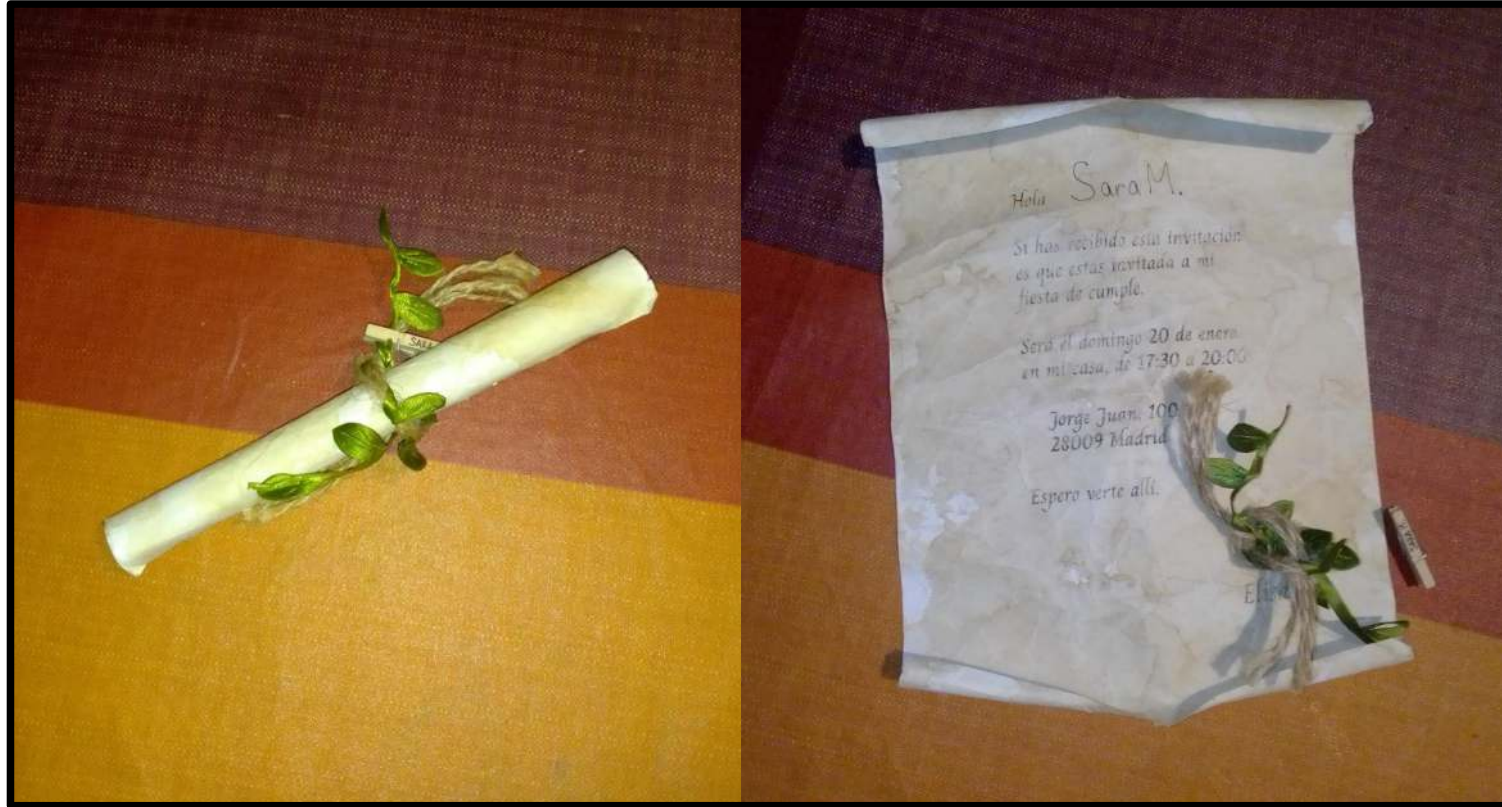 SARA
Hola Sara M.
Si has recibido esta invitación
es que estás invitada a mi
fiesta de cumple.
Será el domingo 20 de enero
en mi casa, de 17:30 a 20:00
Jorge Juan, 100
28009 Madrid
Espero verte allí.
SARA